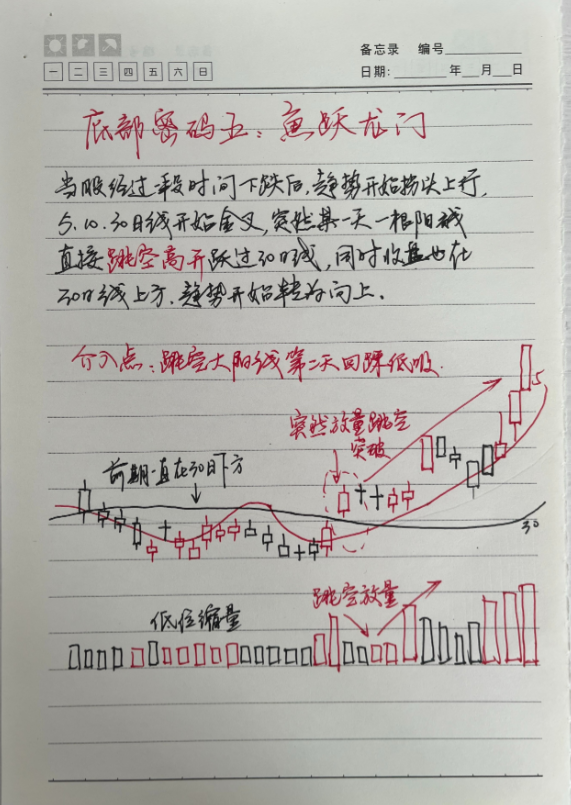 备忘录 编号
一 二 三 四 五 六 日
日期: 年 月 日
底部密码五:鱼跃龙门
当股经过一段时间下跌后,趋势开始拐头上行,
5.10.30日线开始金叉,突然某一天一根阳线
直接跳空高开跃过30日线,同时收盘也在
30日线上方,趋势开始转为向上。
介入点:跳空大阳线第二天回踩低吸.
突然放量跳空
突破
5
前期一直在30日下方
30
跳空放量
低位缩量